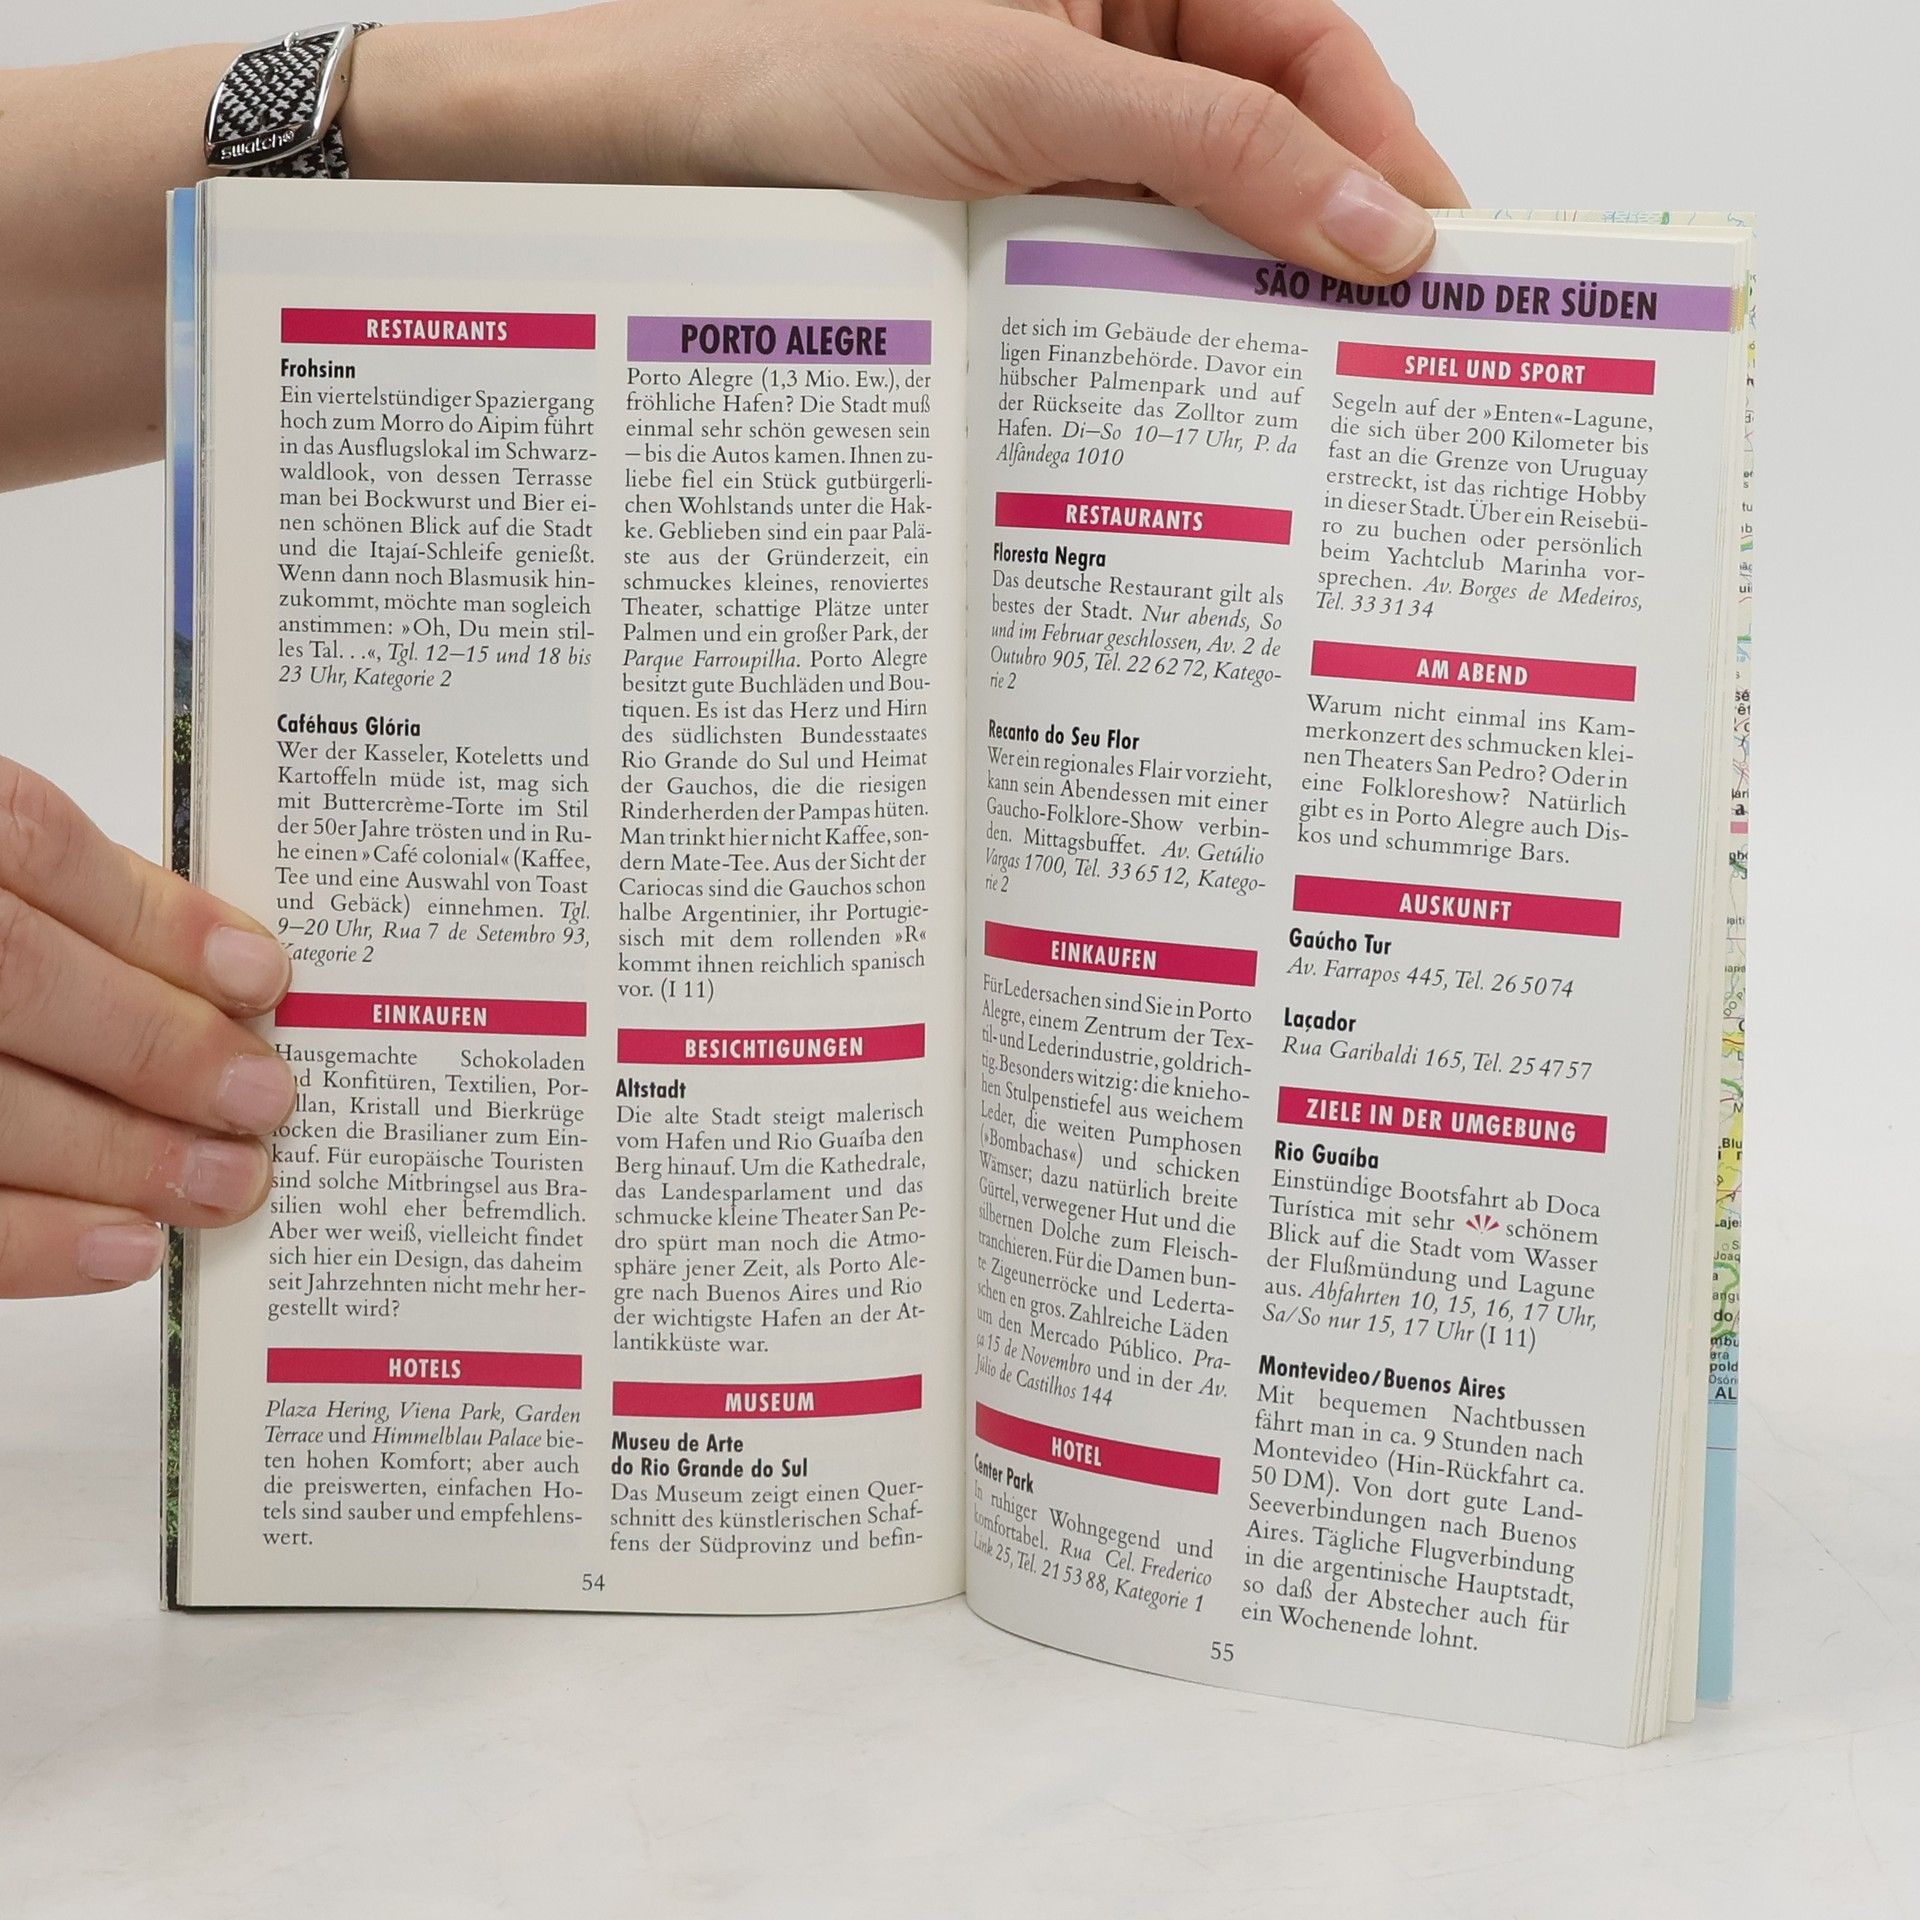 swatch®
RESTAURANTS
Frohsinn
Ein viertelstündiger Spaziergang
hoch zum Morro do Aipim führt
in das Ausflugslokal im Schwarz-
waldlook, von dessen Terrasse
man bei Bockwurst und Bier ei-
nen schönen Blick auf die Stadt
und die Itajaí-Schleife genießt.
Wenn dann noch Blasmusik hin-
zukommt, möchte man sogleich
anstimmen: »Oh, Du mein stil-
les Tal. . .«, Tgl. 12–15 und 18 bis
23 Uhr, Kategorie 2
Caféhaus Glória
Wer der Kasseler, Koteletts und
Kartoffeln müde ist, mag sich
mit Buttercrème-Torte im Stil
der 50er Jahre trösten und in Ru-
he einen »Café colonial« (Kaffee,
Tee und eine Auswahl von Toast
und Gebäck) einnehmen. Tgl.
9–20 Uhr, Rua 7 de Setembro 93,
Kategorie 2
EINKAUFEN
Hausgemachte Schokoladen
und Konfitüren, Textilien, Por-
llan, Kristall und Bierkrüge
locken die Brasilianer zum Ein-
kauf. Für europäische Touristen
sind solche Mitbringsel aus Bra-
silien wohl eher befremdlich.
Aber wer weiß, vielleicht findet
sich hier ein Design, das daheim
seit Jahrzehnten nicht mehr her-
gestellt wird?
HOTELS
Plaza Hering, Viena Park, Garden
Terrace und Himmelblau Palace bie-
ten hohen Komfort; aber auch
die preiswerten, einfachen Ho-
tels sind sauber und empfehlens-
wert.
PORTO ALEGRE
Porto Alegre (1,3 Mio. Ew.), der
fröhliche Hafen? Die Stadt muß
einmal sehr schön gewesen sein
– bis die Autos kamen. Ihnen zu-
liebe fiel ein Stück gutbürgerli-
chen Wohlstands unter die Hak-
ke. Geblieben sind ein paar Palä-
ste aus der Gründerzeit, ein
schmuckes kleines, renoviertes
Theater, schattige Plätze unter
Palmen und ein großer Park, der
Parque Farroupilha. Porto Alegre
besitzt gute Buchläden und Bou-
tiquen. Es ist das Herz und Hirn
des südlichsten Bundesstaates
Rio Grande do Sul und Heimat
der Gauchos, die die riesigen
Rinderherden der Pampas hüten.
Man trinkt hier nicht Kaffee, son-
dern Mate-Tee. Aus der Sicht der
Cariocas sind die Gauchos schon
halbe Argentinier, ihr Portugie-
sisch mit dem rollenden »R«
kommt ihnen reichlich spanisch
vor. (I 11)
BESICHTIGUNGEN
Altstadt
Die alte Stadt steigt malerisch
vom Hafen und Rio Guaíba den
Berg hinauf. Um die Kathedrale,
das Landesparlament und das
schmucke kleine Theater San Pe-
dro spürt man noch die Atmo-
sphäre jener Zeit, als Porto Ale-
gre nach Buenos Aires und Rio
der wichtigste Hafen an der At-
lantikküste war.
MUSEUM
Museu de Arte
do Rio Grande do Sul
Das Museum zeigt einen Quer-
schnitt des künstlerischen Schaf-
fens der Südprovinz und befin-
54
SÃO PAULO UND DER SÜDEN
det sich im Gebäude der ehema-
ligen Finanzbehörde. Davor ein
hübscher Palmenpark und auf
der Rückseite das Zolltor zum
Hafen. Di–So 10–17 Uhr, P. da
Alfândega 1010
RESTAURANTS
Floresta Negra
Das deutsche Restaurant gilt als
bestes der Stadt. Nur abends, So
und im Februar geschlossen, Av. 2 de
Outubro 905, Tel. 22 62 72, Katego-
rie 2
Recanto do Seu Flor
Wer ein regionales Flair vorzieht,
kann sein Abendessen mit einer
Gaucho-Folklore-Show verbin-
den. Mittagsbuffet. Av. Getúlio
Vargas 1700, Tel. 33 65 12, Katego-
rie 2
EINKAUFEN
Für Ledersachen sind Sie in Porto
Alegre, einem Zentrum der Tex-
til- und Lederindustrie, goldrich-
tig. Besonders witzig: die knieho-
hen Stulpenstiefel aus weichem
Leder, die weiten Pumphosen
(»Bombachas«) und schicken
Wämser; dazu natürlich breite
Gürtel, verwegener Hut und die
silbernen Dolche zum Fleisch-
tranchieren. Für die Damen bun-
te Zigeunerröcke und Lederta-
schen en gros. Zahlreiche Läden
um den Mercado Público. Pra-
ça 15 de Novembro und in der Av.
Júlio de Castilhos 144
HOTEL
Center Park
In ruhiger Wohngegend und
komfortabel. Rua Cel. Frederico
Link 25, Tel. 21 53 88, Kategorie 1
SPIEL UND SPORT
Segeln auf der »Enten«-Lagune,
die sich über 200 Kilometer bis
fast an die Grenze von Uruguay
erstreckt, ist das richtige Hobby
in dieser Stadt. Über ein Reisebü-
ro zu buchen oder persönlich
beim Yachtclub Marinha vor-
sprechen. Av. Borges de Medeiros,
Tel. 33 31 34
AM ABEND
Warum nicht einmal ins Kam-
merkonzert des schmucken klei-
nen Theaters San Pedro? Oder in
eine Folkloreshow? Natürlich
gibt es in Porto Alegre auch Dis-
kos und schummrige Bars.
AUSKUNFT
Gaúcho Tur
Av. Farrapos 445, Tel. 26 50 74
Laçador
Rua Garibaldi 165, Tel. 25 47 57
ZIELE IN DER UMGEBUNG
Rio Guaíba
Einstündige Bootsfahrt ab Doca
Turística mit sehr schönem
Blick auf die Stadt vom Wasser
der Flußmündung und Lagune
aus. Abfahrten 10, 15, 16, 17 Uhr,
Sa/So nur 15, 17 Uhr (I 11)
Montevideo/Buenos Aires
Mit bequemen Nachtbussen
fährt man in ca. 9 Stunden nach
Montevideo (Hin-Rückfahrt ca.
50 DM). Von dort gute Land-
Seeverbindungen nach Buenos
Aires. Tägliche Flugverbindung
in die argentinische Hauptstadt,
so daß der Abstecher auch für
ein Wochenende lohnt.
55